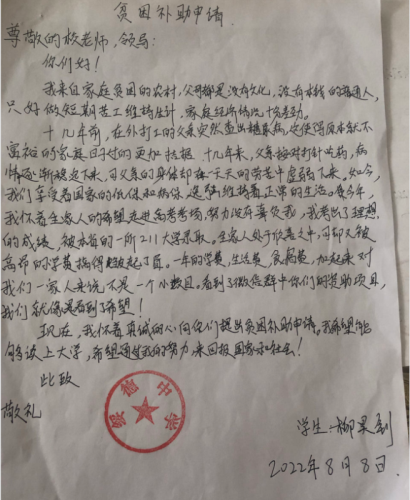 贫困补助申请
尊敬的校老师,领导:
你们好!
我来自家庭贫困的农村,父母都是没有文化,没有本钱的普通人,
只好做短期苦工维持生计,家庭经济情况十分差劲。
十几年前,在外打工的父亲突然查出糖尿病,这使得原本就不
富裕的家庭日子过的更加拮据。十几年来,父亲按时打针吃药,病
情逐渐稳定下来,可父亲的身体却在一天天的劳累中虚弱下来。如今,
我们享受着国家的低保
维持着正常的生活。今年,
我怀着全家人的希望走进高考考场,努力没有辜负我,我考出了理想
的成绩,被本省的一所211大学录取。全家人处于欢喜之中,可却又被
高昂的学费搞得皱起了眉。一年的学费,生活费,食宿费,加起来对
我们一家人来说不是一个小数目,看到了微信群中你们的资助项目,
我们就像是看到了希望!
现在,我怀着真诚的心向你们提出贫困补助申请。我希望能
够读上大学,希望通过我的努力,来回报国家和社会!
此致
敬礼
中学
学生:柳
2022年8月8日